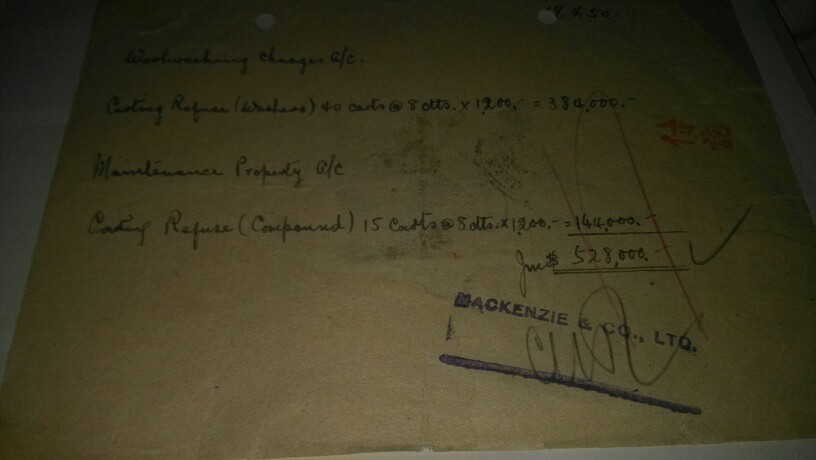 19.4.50.
Woolwashing Charges a/c.
Carting Refuse (Washers) 40 carts @ 8 dtts. x 1200.- = 384,000.-
Maintenance Property a/c
Carting Refuse (Compound) 15 carts @ 8 dtts. x 1200.- = 144,000.-
Jm$ 528,000.-
MACKENZIE & CO., LTD.